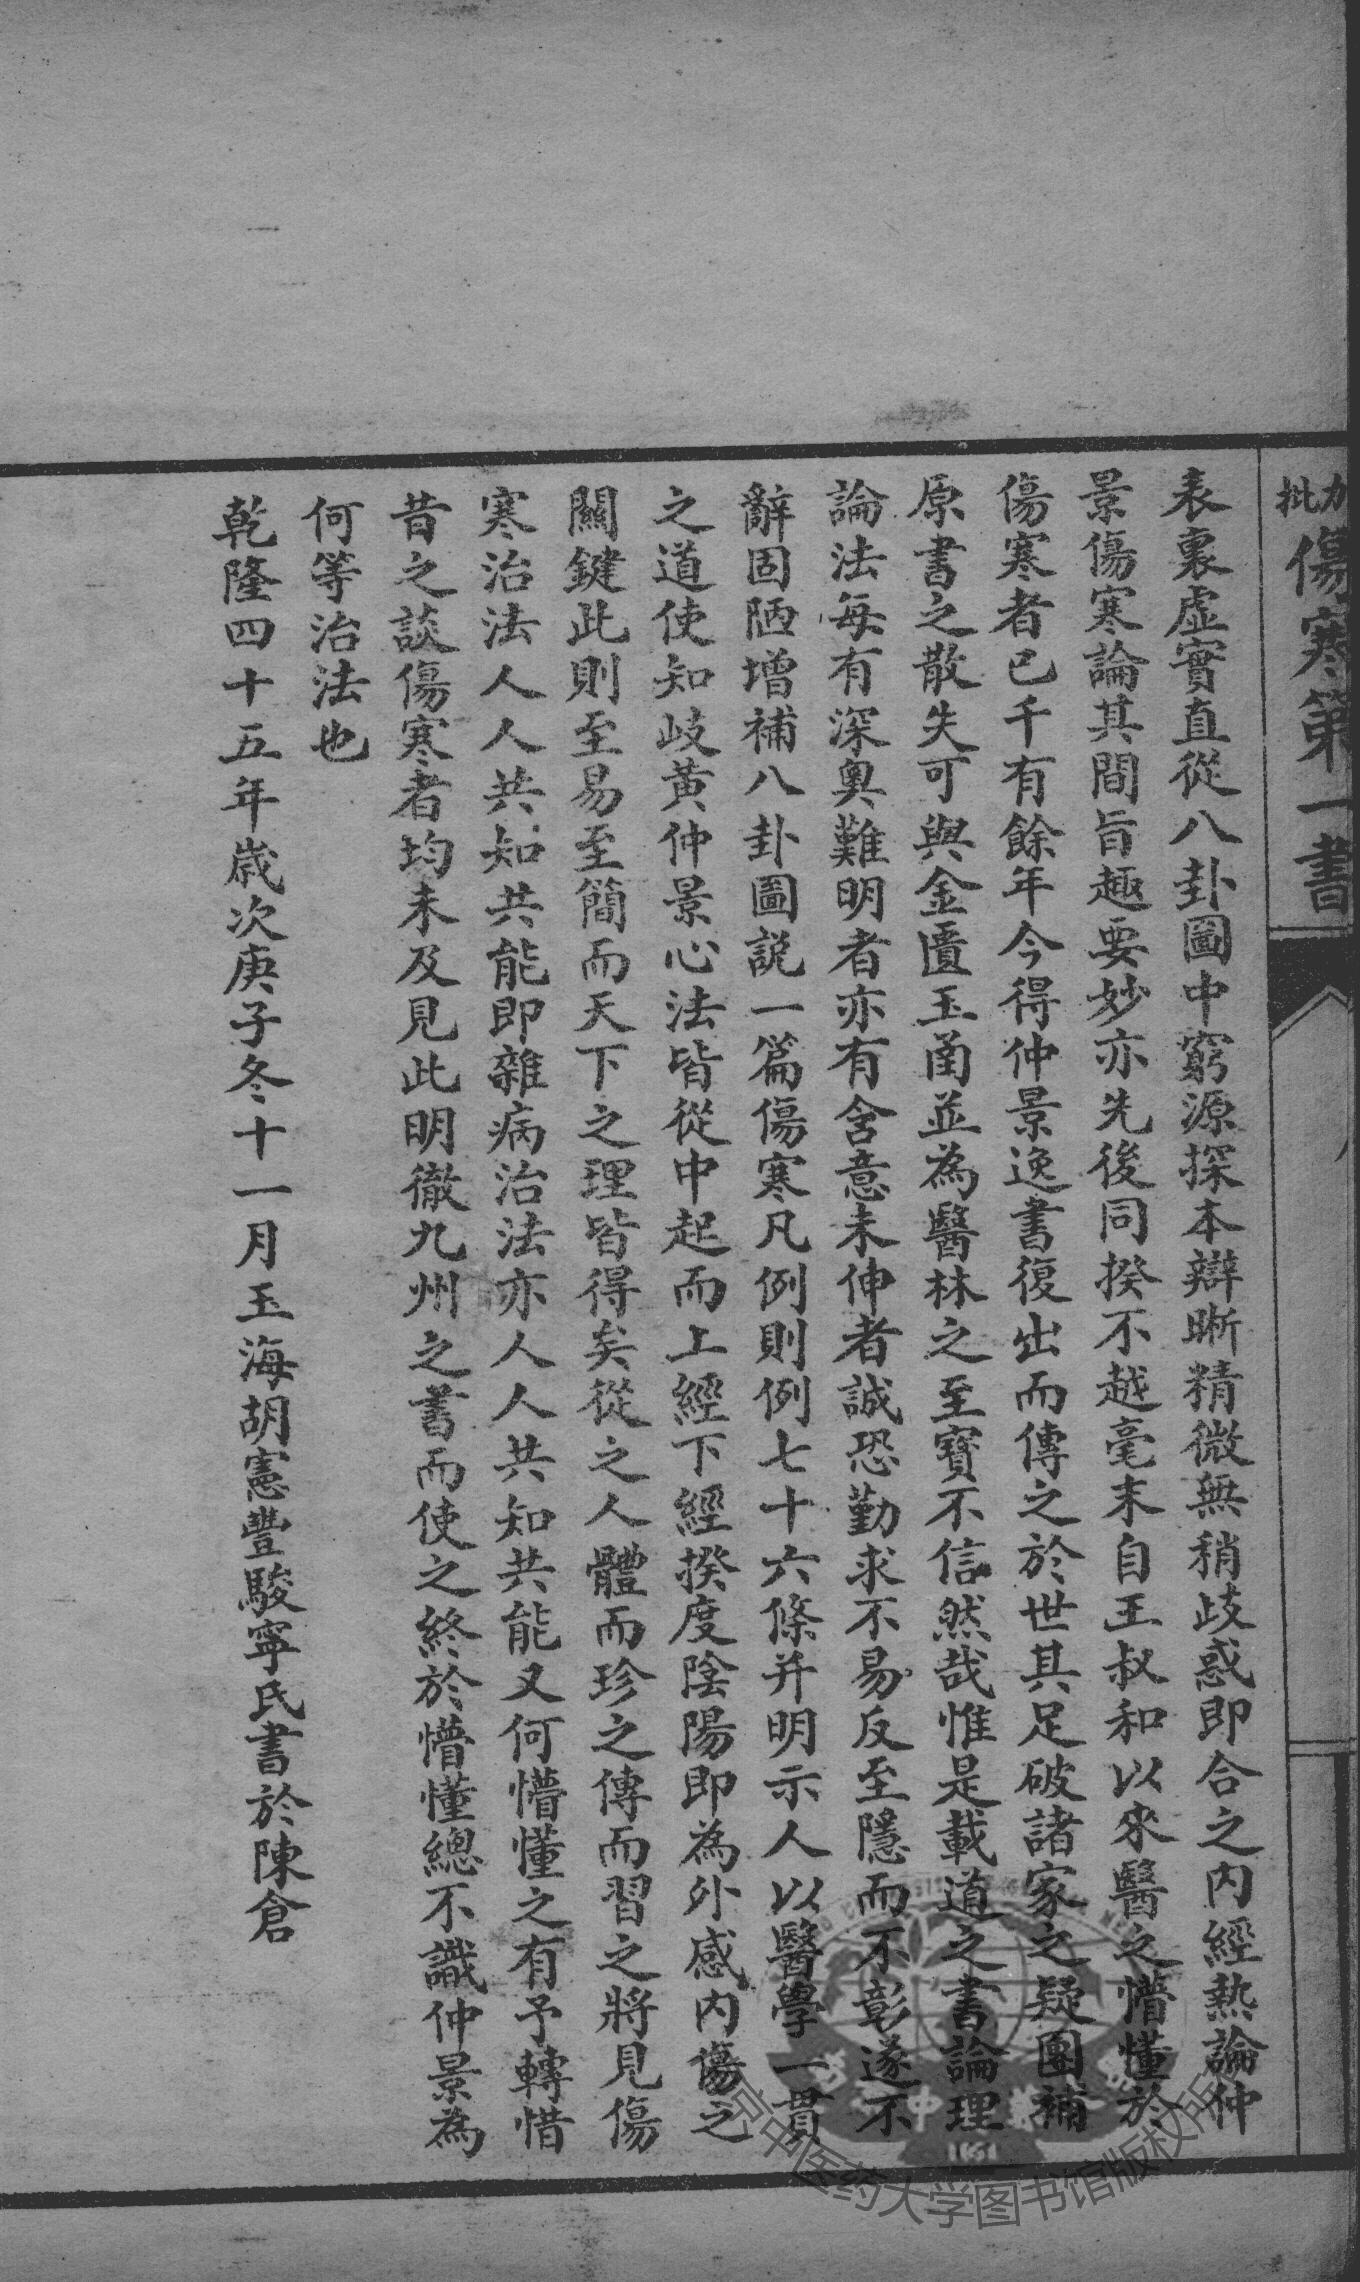 加批傷寒第一書
表裏虛實直從八卦圖中窮源探本辯晰精微無稍歧惑即合之內經熱論仲
景傷寒論其間旨趣要妙亦先後同揆不越毫末自王叔和以來醫之懵懂於
傷寒者已千有餘年今得仲景逸書復出而傳之於世其足破諸家之疑團補
原書之散失可與金匱玉函並為醫林之至寶不信然哉惟是載道之書論理
論法每有深奧難明者亦有含意未伸者誠恐勤求不易反至隱而不彰遂不
辭固陋增補八卦圖說一篇傷寒凡例則例七十六條并明示人以醫學一貫
之道使知岐黃仲景心法皆從中起而上經下經揆度陰陽即為外感內傷之
關鍵此則至易至簡而天下之理皆得矣從之人體而珍之傳而習之將見傷
寒治法人人共知共能即雜病治法亦人人共知共能又何懵懂之有予轉惜
昔之談傷寒者均未及見此明徹九州之書而使之終於懵懂總不識仲景為
何等治法也
乾隆四十五年歲次庚子冬十一月玉海胡憲豐駿寧氏書於陳倉
京中医药大学图书馆版权所